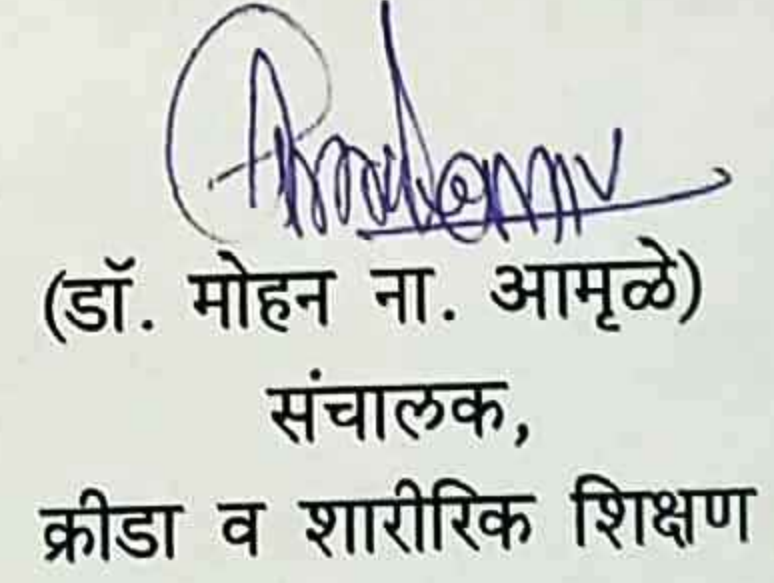 (डॉ. मोहन ना. आमृळे)
संचालक,
क्रीडा व शारीरिक शिक्षण